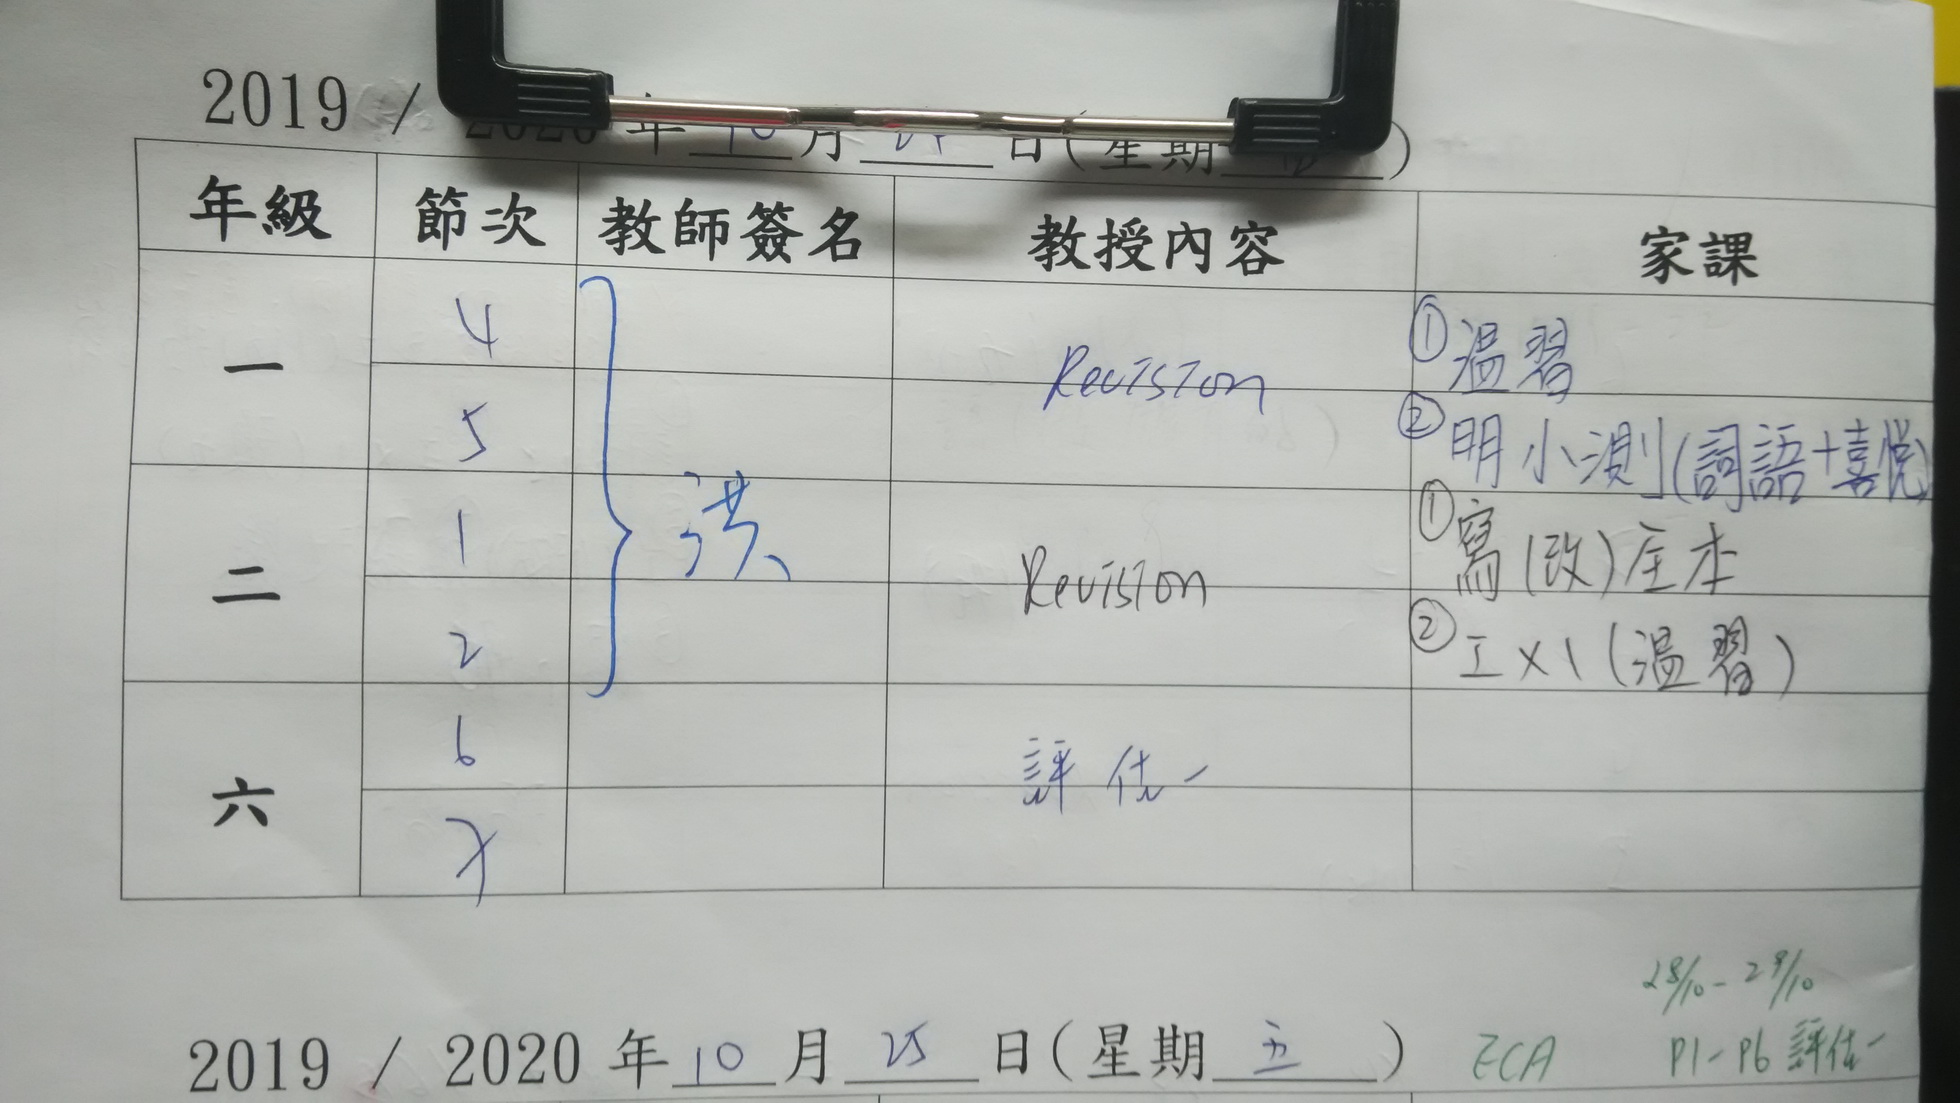 2019 / 2020 年 10 月 24 日(星期 )
年級 節次 教師簽名 教授內容 家課
一 4 Revision ①溫習
5 ②明小測(詞語+喜悅)
二 1 洪 Revision ①寫(改)全本
2 ②工x1(溫習)
六 6 評估一
7
28/10-29/10
2019 / 2020 年 10 月 25 日(星期 五 ) ECA P1-P6 評估一